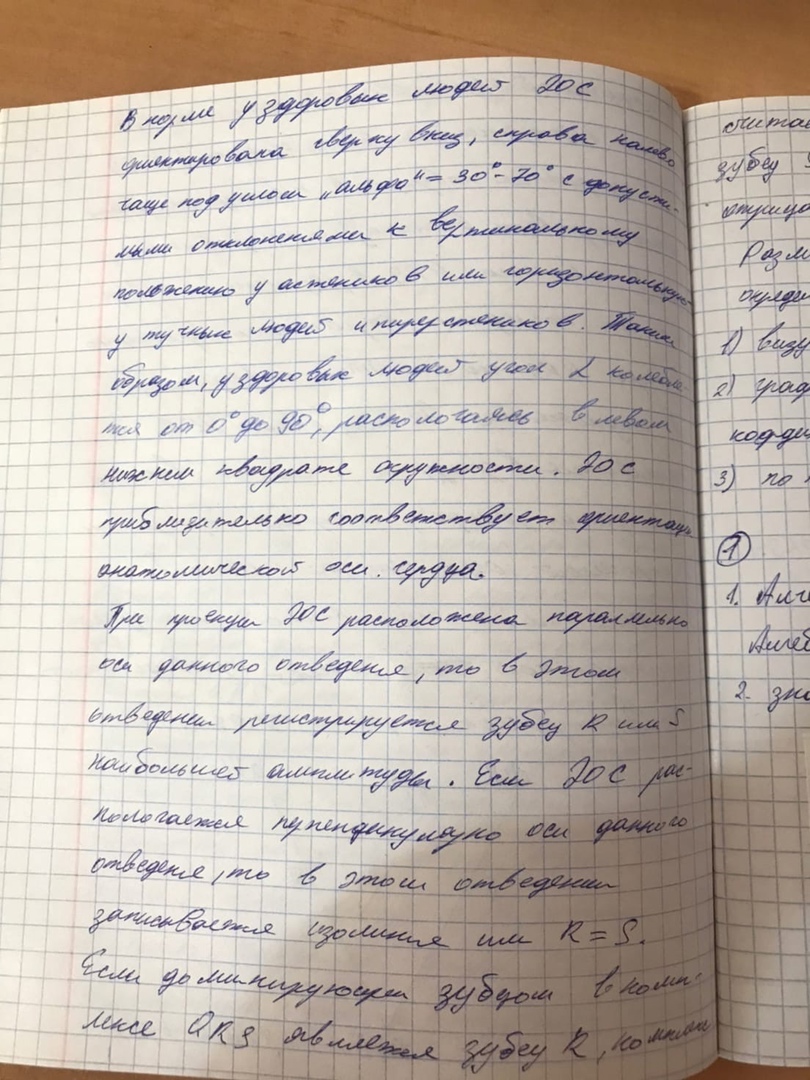 В норме у здоровых людей ЭОС
ориентирована сверху вниз, справа налево
чаще под углом „альфа" = 30° - 70° с допусти-
мыми отклонениями к вертикальному
положению у астеников или горизонтальную-
у тучных людей гиперстеников. Таким
образом, у здоровых людей угол α колебле
тся от 0° до 90°, распологаясь в левом
нижнем квадрате окружности. ЭОС
приблизительно соответствует ориентаци
анатомической оси сердца.
При проекции ЭОС расположена параллельно
оси данного отведения, то в этом
отведении регистрируется зубец R или S
наибольшей амплитуды. Если ЭОС рас-
пологается перпендикулярно оси данного
отведения, то в этом отведении
записывается изолиния или R = S.
Если доминирующем зубцом в комп-
лексе QRS является зубец R, комплекс
считае
зубец
отрица
Разли
определ
1) визу
2) граф
коффи
3) по
①
1. Алге
Алгеб
2. зна